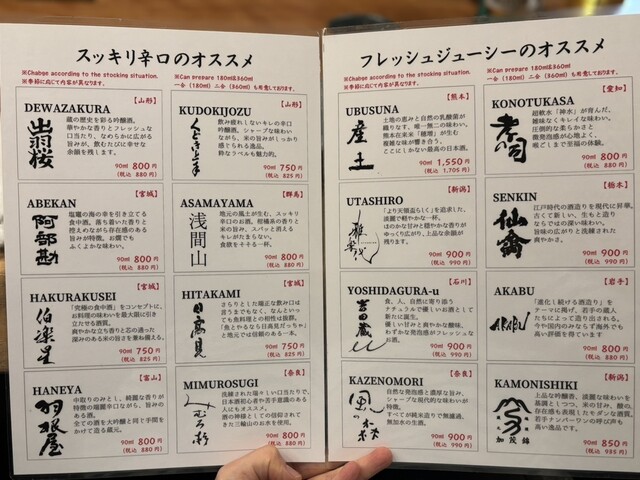 スッキリ辛口のオススメ
※Chabge according to the stocking situation.
※季節に応じて内容が異なります。
※Can prepare 180ml&360ml
一合(180ml) 二合(360ml)も用意しております。
DEWAZAKURA
【山形】
出羽桜
蔵の歴史を彩る吟醸酒。
華やかな香りとフレッシュな
口当たり、なめらかに広がる
旨みが、飲むたびに幸せな
余韻を残します。
90ml 800円
(税込 880円)
KUDOKIJOZU
【山形】
くどき上手
飲み疲れしないキレの辛口
吟醸酒。シャープな味わい
ながら、米の旨みがしっかり
感じられる逸品。
粋なラベルも魅力的。
90ml 750円
(税込 825円)
ABEKAN
【宮城】
阿部勘
塩竈の海の幸を引き立てる
食中酒。落ち着いた香りと
控えめながら存在感のある
旨みが特徴。お燗でも
ふくよかな味わい。
90ml 800円
(税込 880円)
ASAMAYAMA
【群馬】
浅間山
地元の風土が生む、スッキリ
辛口のお酒。柑橘系の香りと
米の旨み、スパッと消える
キレがたまらない。
食欲をそそる一杯。
90ml 800円
(税込 880円)
HAKURAKUSEI
【宮城】
伯楽星
「究極の食中酒」をコンセプトに、
お料理の味わいを最大限に引き
立たせる酒質。
爽やかな立ち香りと芯の通った
深みのある米の旨さを兼ね備える。
90ml 750円
(税込 825円)
HITAKAMI
【宮城】
日高見
さらりとした端正な飲み口は
言うまでもなく、なんといっ
ても魚料理との相性は抜群。
「魚とやるなら日高見だっちゃ」
と地元では信頼のある一本。
90ml 750円
(税込 825円)
HANEYA
【富山】
羽根屋
中取りのみとし、綺麗な香りが
特徴の端麗辛口ながら、旨みの
ある酒。
全ての酒を大吟醸と同じ手間を
かけて造る蔵元。
90ml 800円
(税込 880円)
MIMUROSUGI
【奈良】
みむろ杉
洗練された瑞々しい口当たりで、
日本酒初心者や苦手意識のある
人にもオススメ。
酒の神様としての信仰されて
きた三輪山のお水を使用。
90ml 800円
(税込 880円)
フレッシュジューシーのオススメ
※Chabge according to the stocking situation.
※季節に応じて内容が異なります。
※Can prepare 180ml&360ml
一合(180ml) 二合(360ml)も用意しております。
UBUSUNA
【熊本】
産土
土地の恵みと自然の乳酸菌が
織りなす、唯一無二の味わい。
熊本在来米「穂増」が生む
複雑な味が響き合う。
ここにしかない最高の日本酒。
90ml 1,550円
(税込 1,705円)
KONOTUKASA
【愛知】
孝の司
超軟水「神水」が育んだ、
雑味なくキレイな味わい。
圧倒的な柔らかさと、
微発泡感が心地よく、
喉ごしまで至福の体験。
90ml 800円
(税込 880円)
UTASHIRO
【新潟】
雅楽代
「より天領盃らしく」を追求した、
淡麗で軽やかな一杯。
ほのかな甘みと穏やかな香りが
ゆっくり広がり、上品な余韻が
残ります。
90ml 900円
(税込 990円)
SENKIN
【栃木】
仙禽
江戸時代の酒造りを現代に昇華。
古くて新しい、生もと造り
ならではの深い味わい。
旨味の広がりと洗練された
爽やかさ。
90ml 900円
(税込 990円)
YOSHIDAGURA-u
【石川】
吉田蔵u
食、人、自然に寄り添う
ナチュラルで優しいお酒とし
て新たに誕生。
優しい甘みと爽やかな酸味、
わずかな発泡感がフレッシュ
なお酒。
90ml 900円
(税込 990円)
AKABU
【岩手】
AKABU
「進化し続ける酒造り」を
テーマに掲げ、若手の蔵人
たちによって造り出される。
今や国内のみならず海外でも
高い評価を得ています。
90ml 800円
(税込 880円)
KAZENOMORI
【奈良】
風の森
自然な発泡感と濃厚な旨み、
シャープな現代的な味わいが
特徴。
すべてが純米造りで無濾過、
無加水の生酒。
90ml 900円
(税込 990円)
KAMONISHIKI
【新潟】
加茂錦
上品な吟醸香、淡麗な味わいを
基調としつつ、米の甘み、酸の
存在感も表現したモダンな酒質。
若手ナンバーワンの呼び声も
高い逸品です。
90ml 850円
(税込 935円)